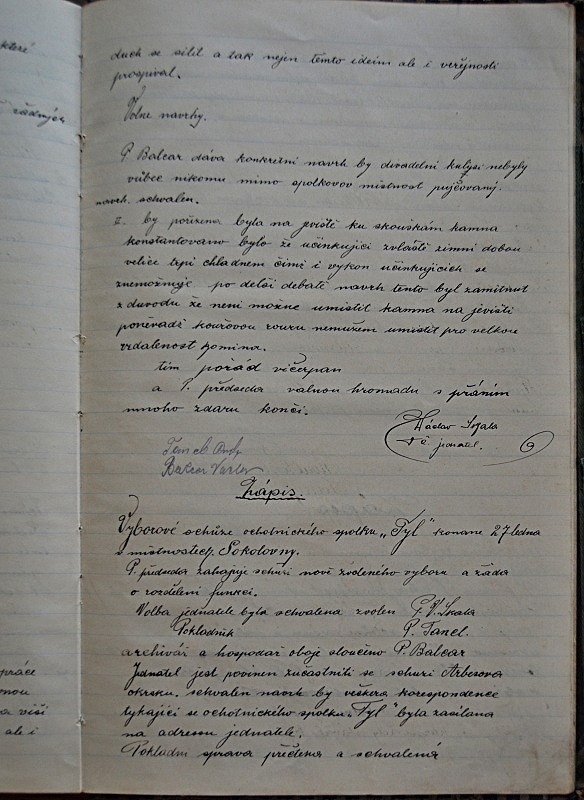 které
řádných
duch se sílil a tak nejen těmto ideim ale i veřejnosti
prospíval.
Volne navrhy.
P. Balcar dáva konkretní navrh by divadelní kulysi nebyly
vůbec nikomu mimo spolkovov mistnost pujčovaný.
navrh schvalen.
II. by pořízena byla na jeviště ku skouškám kamna
konstantovano bylo že učinkujici zvlaště zimni dobou
velice trpi chladnem čimž i vykon učinkujicich se
znemožnuje. po delši debatě navrh tento byl zamitnut
z duvodu že neni možne umistit kamna na jevišti
poněvadž kouřovou rouru nemužem umistit pro velkou
vzdalenost komina.
tim pořád vičerpan
a P. předseda valnou hromadu s přánim
mnoho zdaru konči.
Václav Skala
t. č. jednatel.
Balcar Vaclav
Zápis.
Vyborové schůze ochotnického spolku „Tyl“ konane 27 ledna
v mistnostech Sokolovny.
P. předseda zahajuje schuzi nově zvoleného vyboru a žáda
o rozděleni funkci.
Volba jednatele byla schvalena zvolen P. V. Skala
Pokladnik P. Tanel.
archivář a hospodař oboje sloučeno P. Balcar
Jednatel jest povinen zučastniti se schuzi Arbesova
okrsku. schvalen navrh by veškera korespondence
tykajíci se ochotnického spolku „Tyl“ byla zasilana
na adresu jednatele.
Pokladni sprava přečtena a schvalená
práce
nou
a viši
ale i